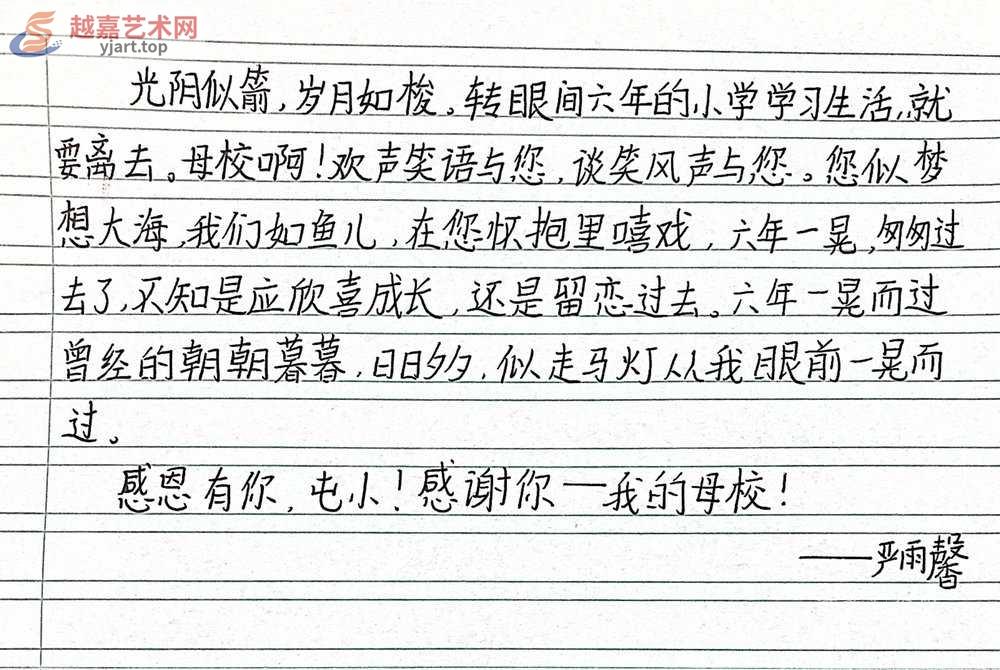 越嘉艺术网
yjart.top
光阴似箭,岁月如梭。转眼间六年的小学学习生活,就
要离去。母校啊!欢声笑语与您,谈笑风声与您。您似梦
想大海,我们如鱼儿,在您怀抱里嘻戏,六年一晃,匆匆过
去了,不知是应欣喜成长,还是留恋过去。六年一晃而过
曾经的朝朝暮暮,日日夕夕,似走马灯从我眼前一晃而
过。
感恩有你,屯小!感谢你——我的母校!
——严雨馨